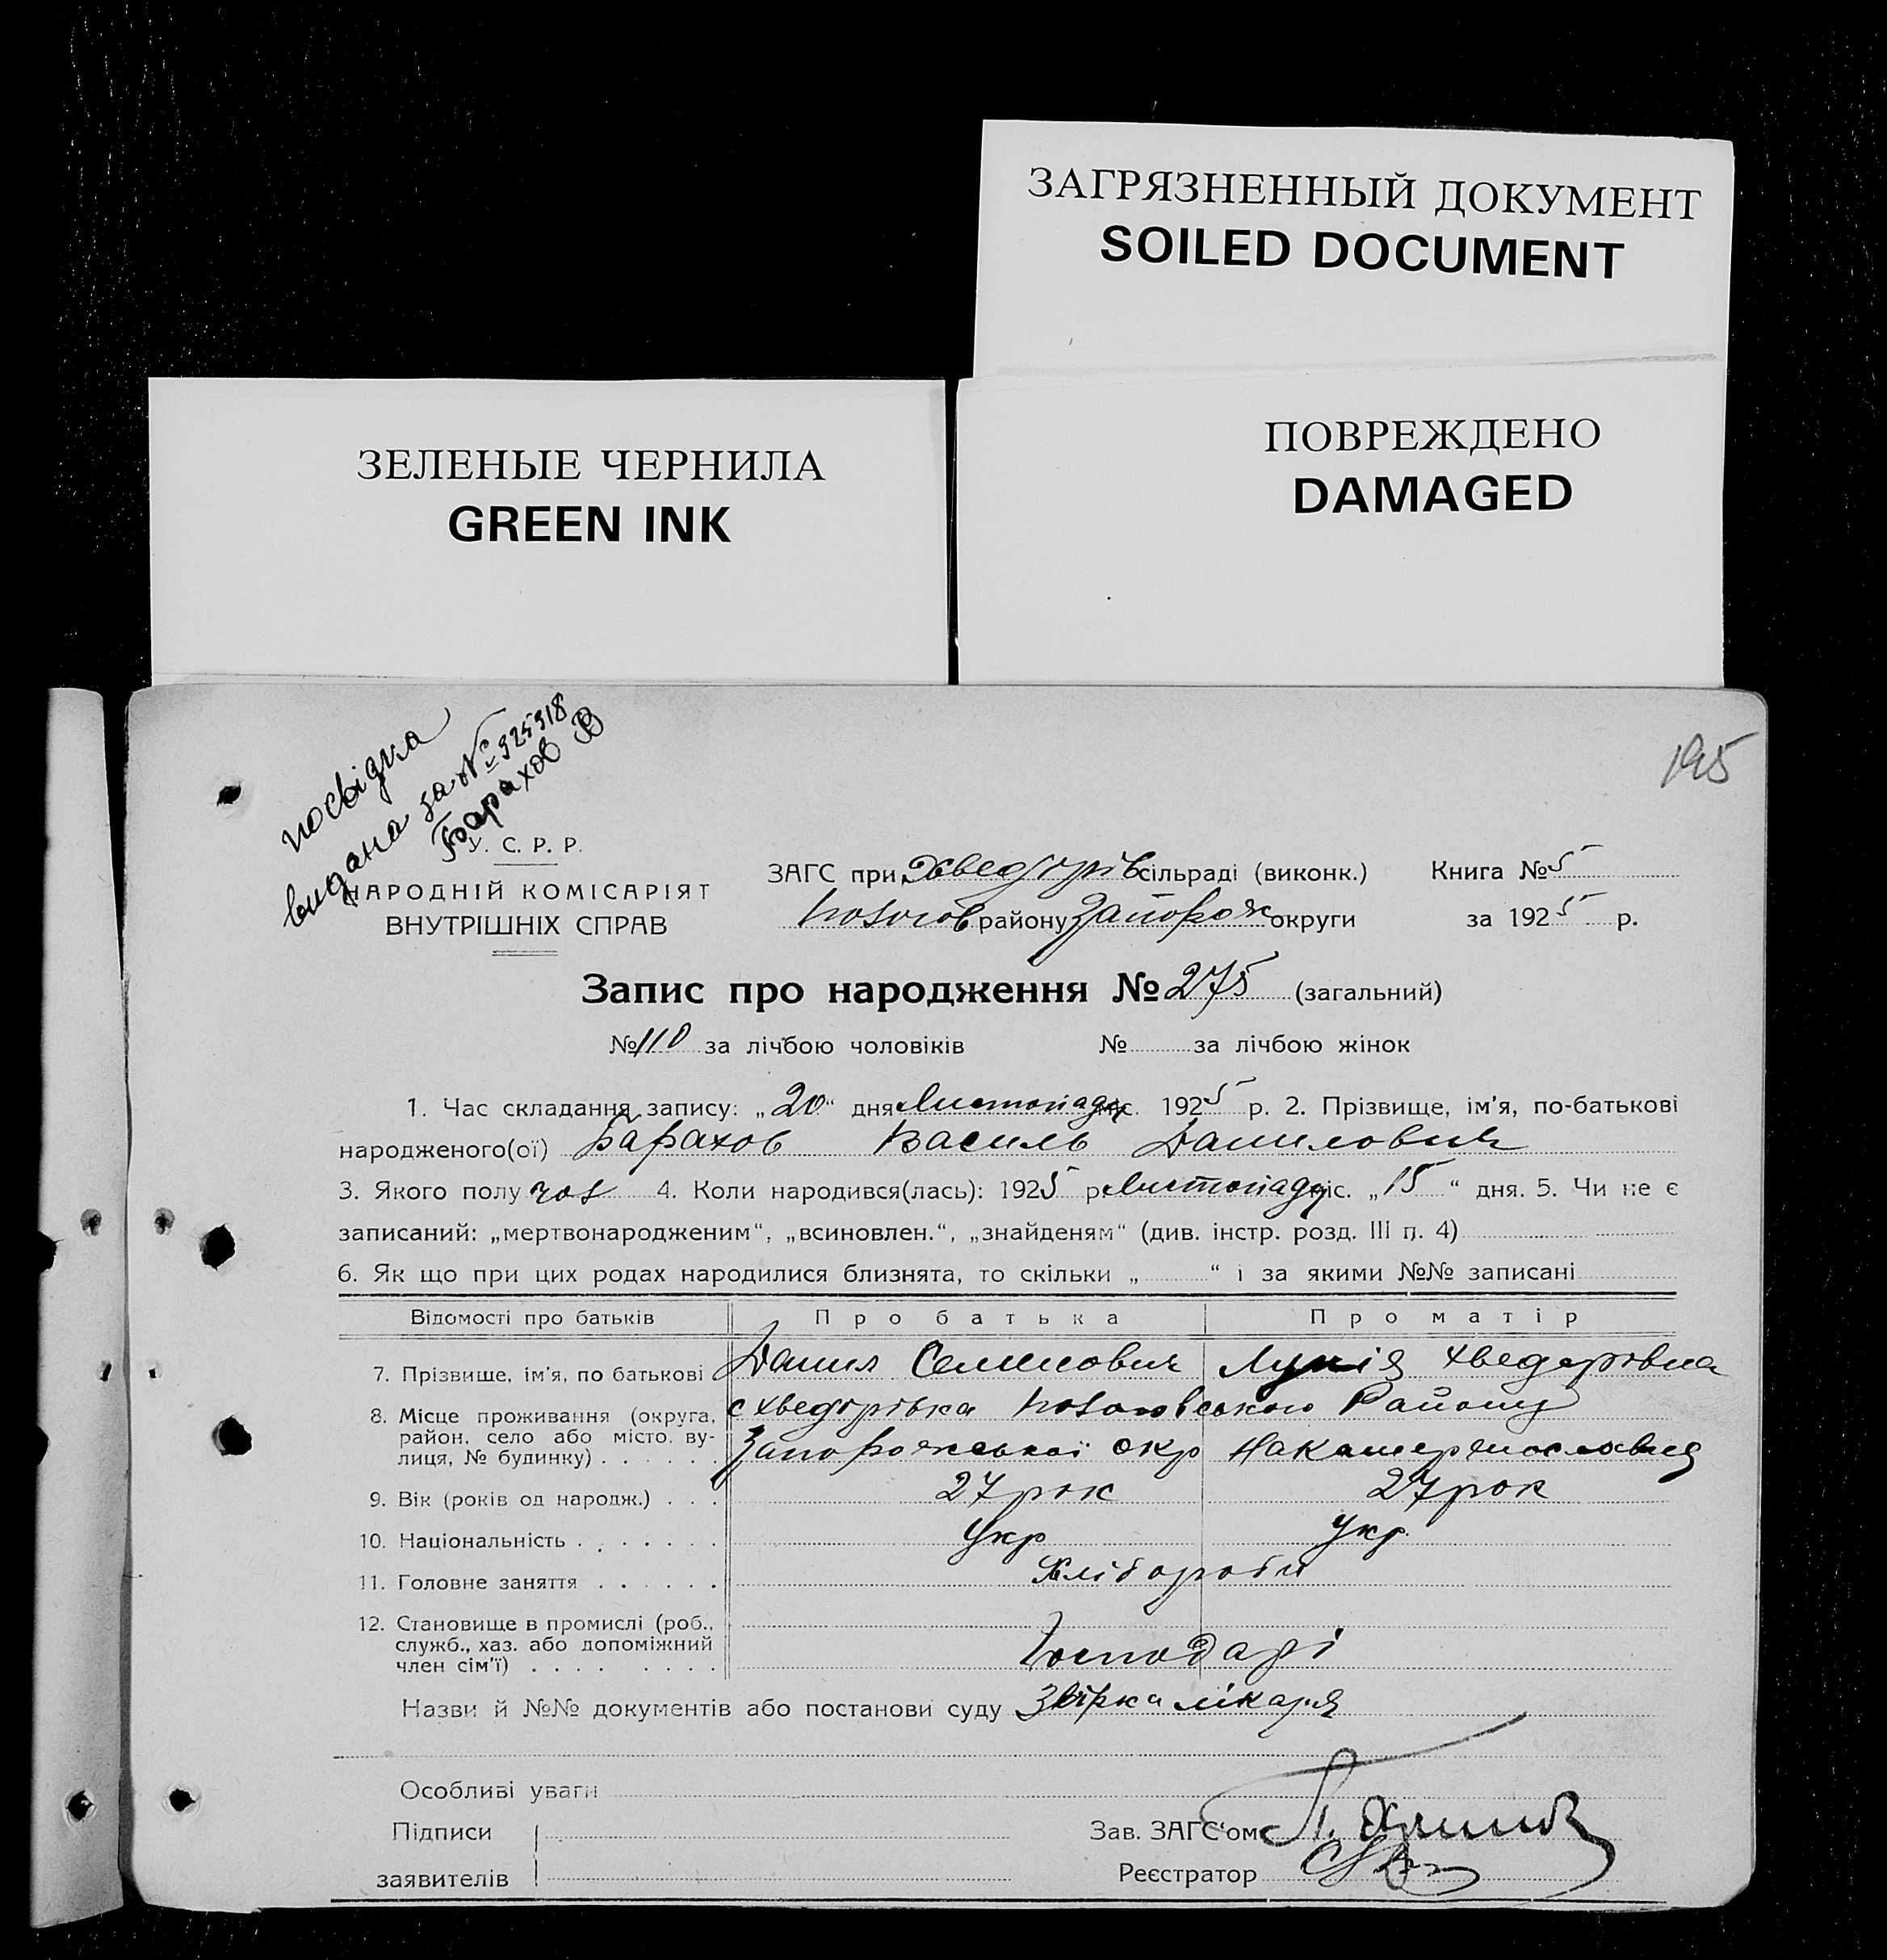 ЗАГРЯЗНЕННЫЙ ДОКУМЕНТ
SOILED DOCUMENT
ЗЕЛЕНЫЕ ЧЕРНИЛА
GREEN INK
ПОВРЕЖДЕНО
DAMAGED
195
посвідка
видана за № 325318
Барахов В
У. С. Р. Р.
НАРОДНІЙ КОМІСАРІЯТ
ВНУТРІШНІХ СПРАВ
ЗАГС при Хведорів сільраді (виконк.) Книга № 5
району Запорож округи за 1925 р.
Запис про народження № 275 (загальний)
№ 110 за лічбою чоловіків № за лічбою жінок
1. Час складання запису: „20“ дня Листопада міс. 1925 р. 2. Прізвище, ім'я, по-батькові
народженого(ої) Барахов Василь Данилович
3. Якого полу чол 4. Коли народився(лась): 1925 р. Листопаду міс. „15“ дня. 5. Чи не є
записаний: „мертвонародженим“, „всиновлен.“, „знайденям“ (див. інстр. розд. III п. 4)
6. Як що при цих родах народилися близнята, то скільки „ “ і за якими №№ записані
Відомості про батьків Про батька Про матір
7. Прізвише, ім'я, по батькові Данил Семенович Хведорівна
8. Місце проживання (округа, район, село або місто, вулиця, № будинку) с Хведорівка Району
Запорожської окр
9. Вік (років од народж.) 27 рок 27 рок
10. Національність Укр Укр.
11. Головне заняття Хлібороби
12. Становище в промислі (роб., служб., хаз. або допоміжний член сім'ї) Господарі
Назви й №№ документів або постанови суду лікаря
Особливі уваги
Підписи
заявителів
Зав. ЗАГС'ом
Реєстратор